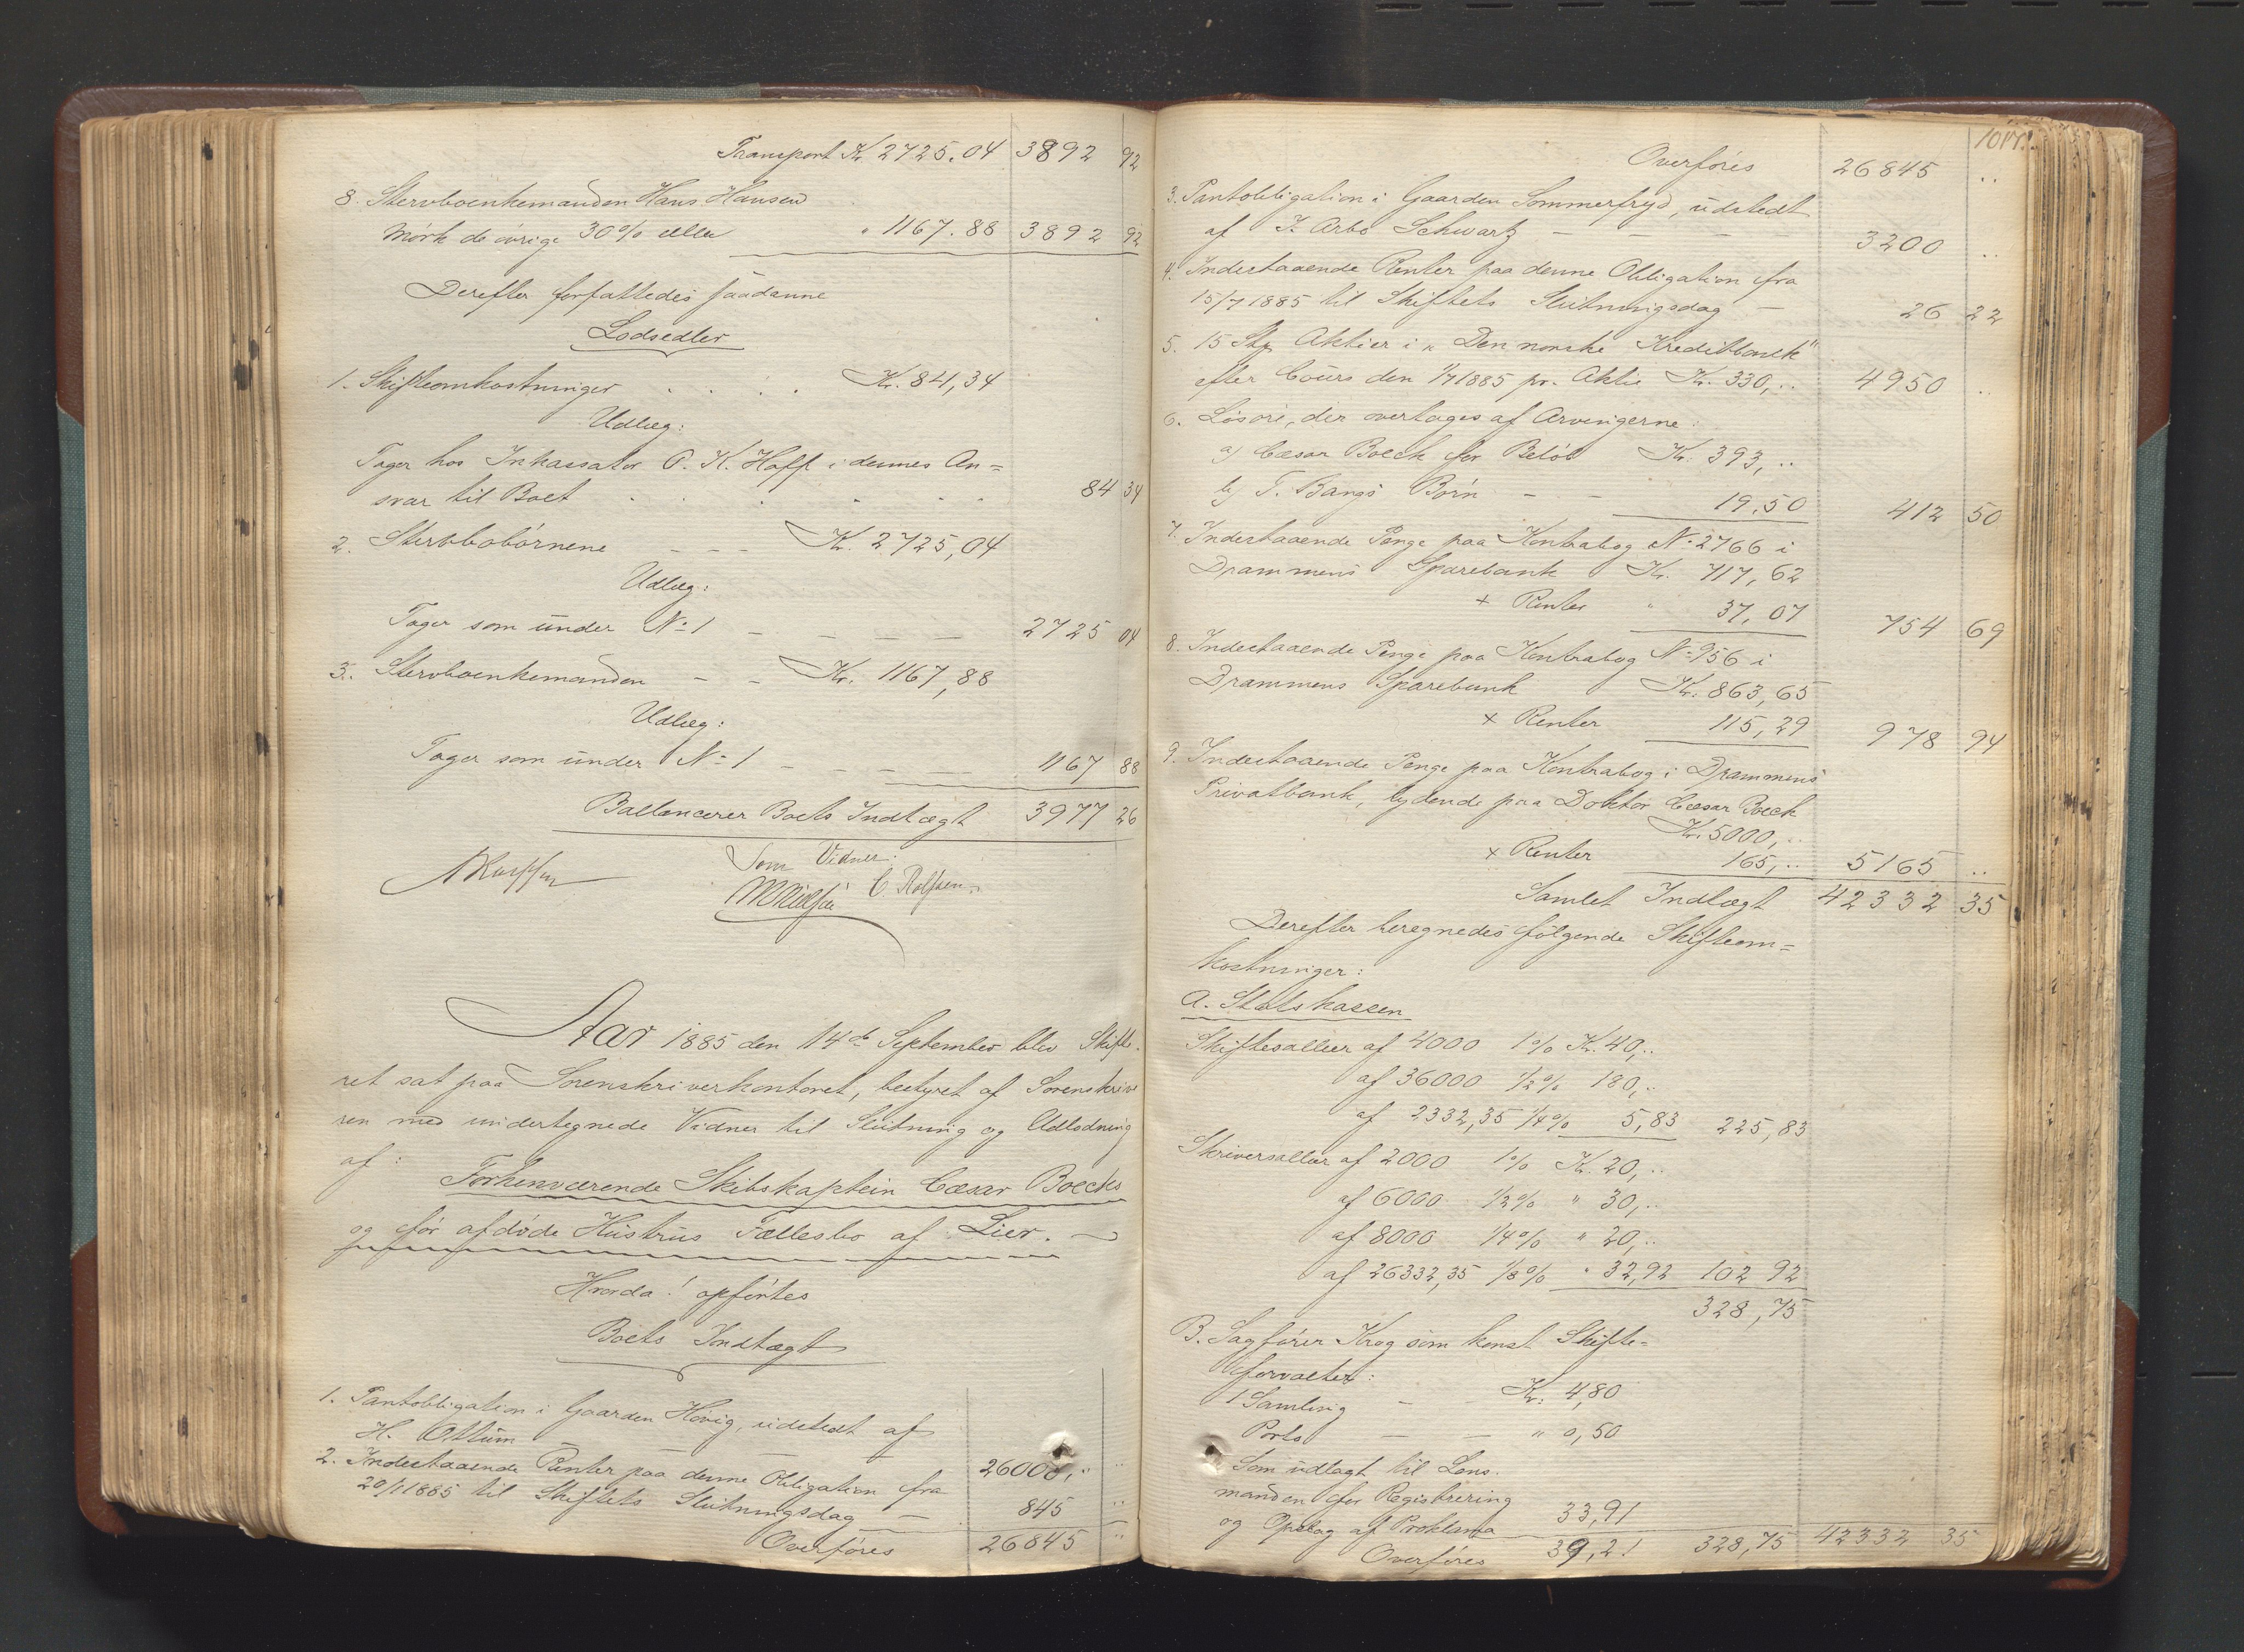 Transport Kr. 2725.04 3892 92
8. Stervboenkemanden Hans Hansen
Mørk de øvrige 30% eller " 1167.88 3892 92
Derefter forfattedes saadanne
Lodsedler
1. Skifteomkostninger . . . . Kr. 84,34
Udlæg:
Tager hos Inkassator P. K. Hoff i dennes An=
svar til Boet . . . . . . 84 34
2. Stervbobørnene - - - Kr. 2725,04
Udlæg:
Tager som under No 1 - - - - - 2725 04
3. Stervboenkemanden - - Kr. 1167,88
Udlæg:
Tager som under No 1 - - - - - 1167 88
Ballancerer Boets Indtægt 3977 26
Som Vidner:
C. Rolfsen
Aar 1885 den 14de September blev Skifte-
ret sat paa Sorenskriverkontoret, bestyret af Sorenskrive
ren med undertegnede Vidner til Slutning og Udlodning
af:
Forhenværende Skibskaptein Cæsar Boecks
og før afdøde Hustrus Fællesbo af Lier.
Hvorda! opførtes
Boets Indtægt
1. Pantobligation i Gaarden Høvig, udstedt af
H. Ottum - 26000,.. ..
2. Indestaaende Renter paa denne Obligation fra
20/1 1885 til Skiftets Slutningsdag - 845 ..
Overføres 26845 ..
101
Overføres 26845 ..
3. Pantobligation i Gaarden Sommerfryd, udstedt
af J. Arbo Schwartz - - - - 3200 ..
4. Indestaaende Renter paa denne Obligation fra
15/7 1885 til Skiftets Slutningsdag - 26 22
5. 15 Stkr Aktier i "Den norske Kreditbank"
efter Cours den 1/7 1885 pr. Aktie Kr. 330,.. 4950 ..
6. Løsøre, der overtages af Arvingerne:
a) Cæsar Boeck for Beløb Kr. 393,..
b) T. Bangs Børn - - 19.50 412 50
7. Indestaaende Penge paa Kontrabog No 2766 i
Drammens Sparebank Kr. 717,62
+ Renter " 37,07 754 69
8. Indestaaende Penge paa Kontrabog No 956 i
Drammens Sparebank Kr. 863,65
+ Renter 115,29 978 94
9. Indestaaende Penge paa Kontrabog i Drammens
Privatbank, lydende paa Doktor Cæsar Boeck
Kr. 5000,..
+ Renter 165,.. 5165 ..
Samlet Indtægt 42332 35
Derefter beregnedes følgende Skifteom=
kostninger:
A. Statskassen
Skiftesallær af 4000 1% Kr. 40,..
af 36000 1/2% 180,..
af 2332,35 1/4% 5,83 225,83
Skriversallær af 2000 1% Kr. 20,..
af 6000 1/2% " 30,..
af 8000 1/4% " 20,..
af 26332,35 1/8% " 32,92 102 92
328,75
B. Sagfører Krog som konst. Skifte=
forvalter:
1 Samling - - Kr. 4,80
Porto - - " 0,50
Som udlagt til Lens.
manden for Registrering
og Opslag af Proklama 33,91
Overføres 39,21 328,75 42332 35